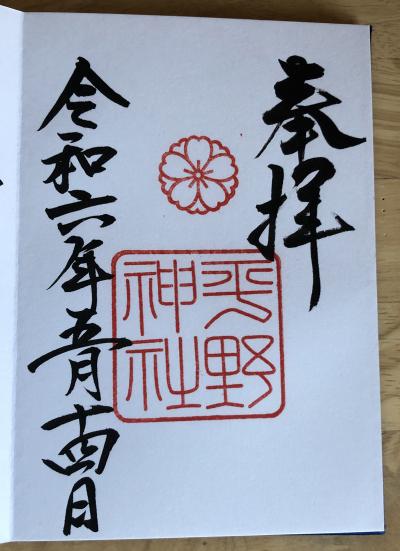 奉拝
平野
神社
令和六年五月十四日